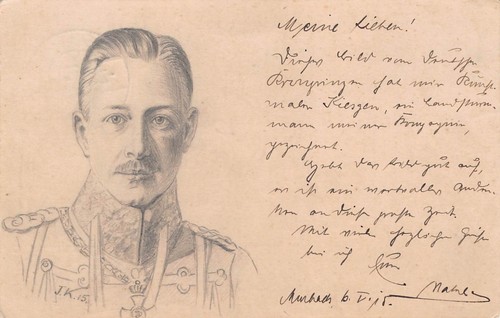 Meine Lieben!
Dieses Bild vom Deutschen
Kronprinzen hat mir Kunst-
maler Kiesgen, ein Landsturm-
mann meiner Kompagnie,
gezeichnet.
Hebt das Bild gut auf,
es ist ein wertvolles Anden-
ken an diese große Zeit.
Mit vielen herzlichen Grüßen
bin ich Euer
Murbach 6. V. 15.
J.K. 15.